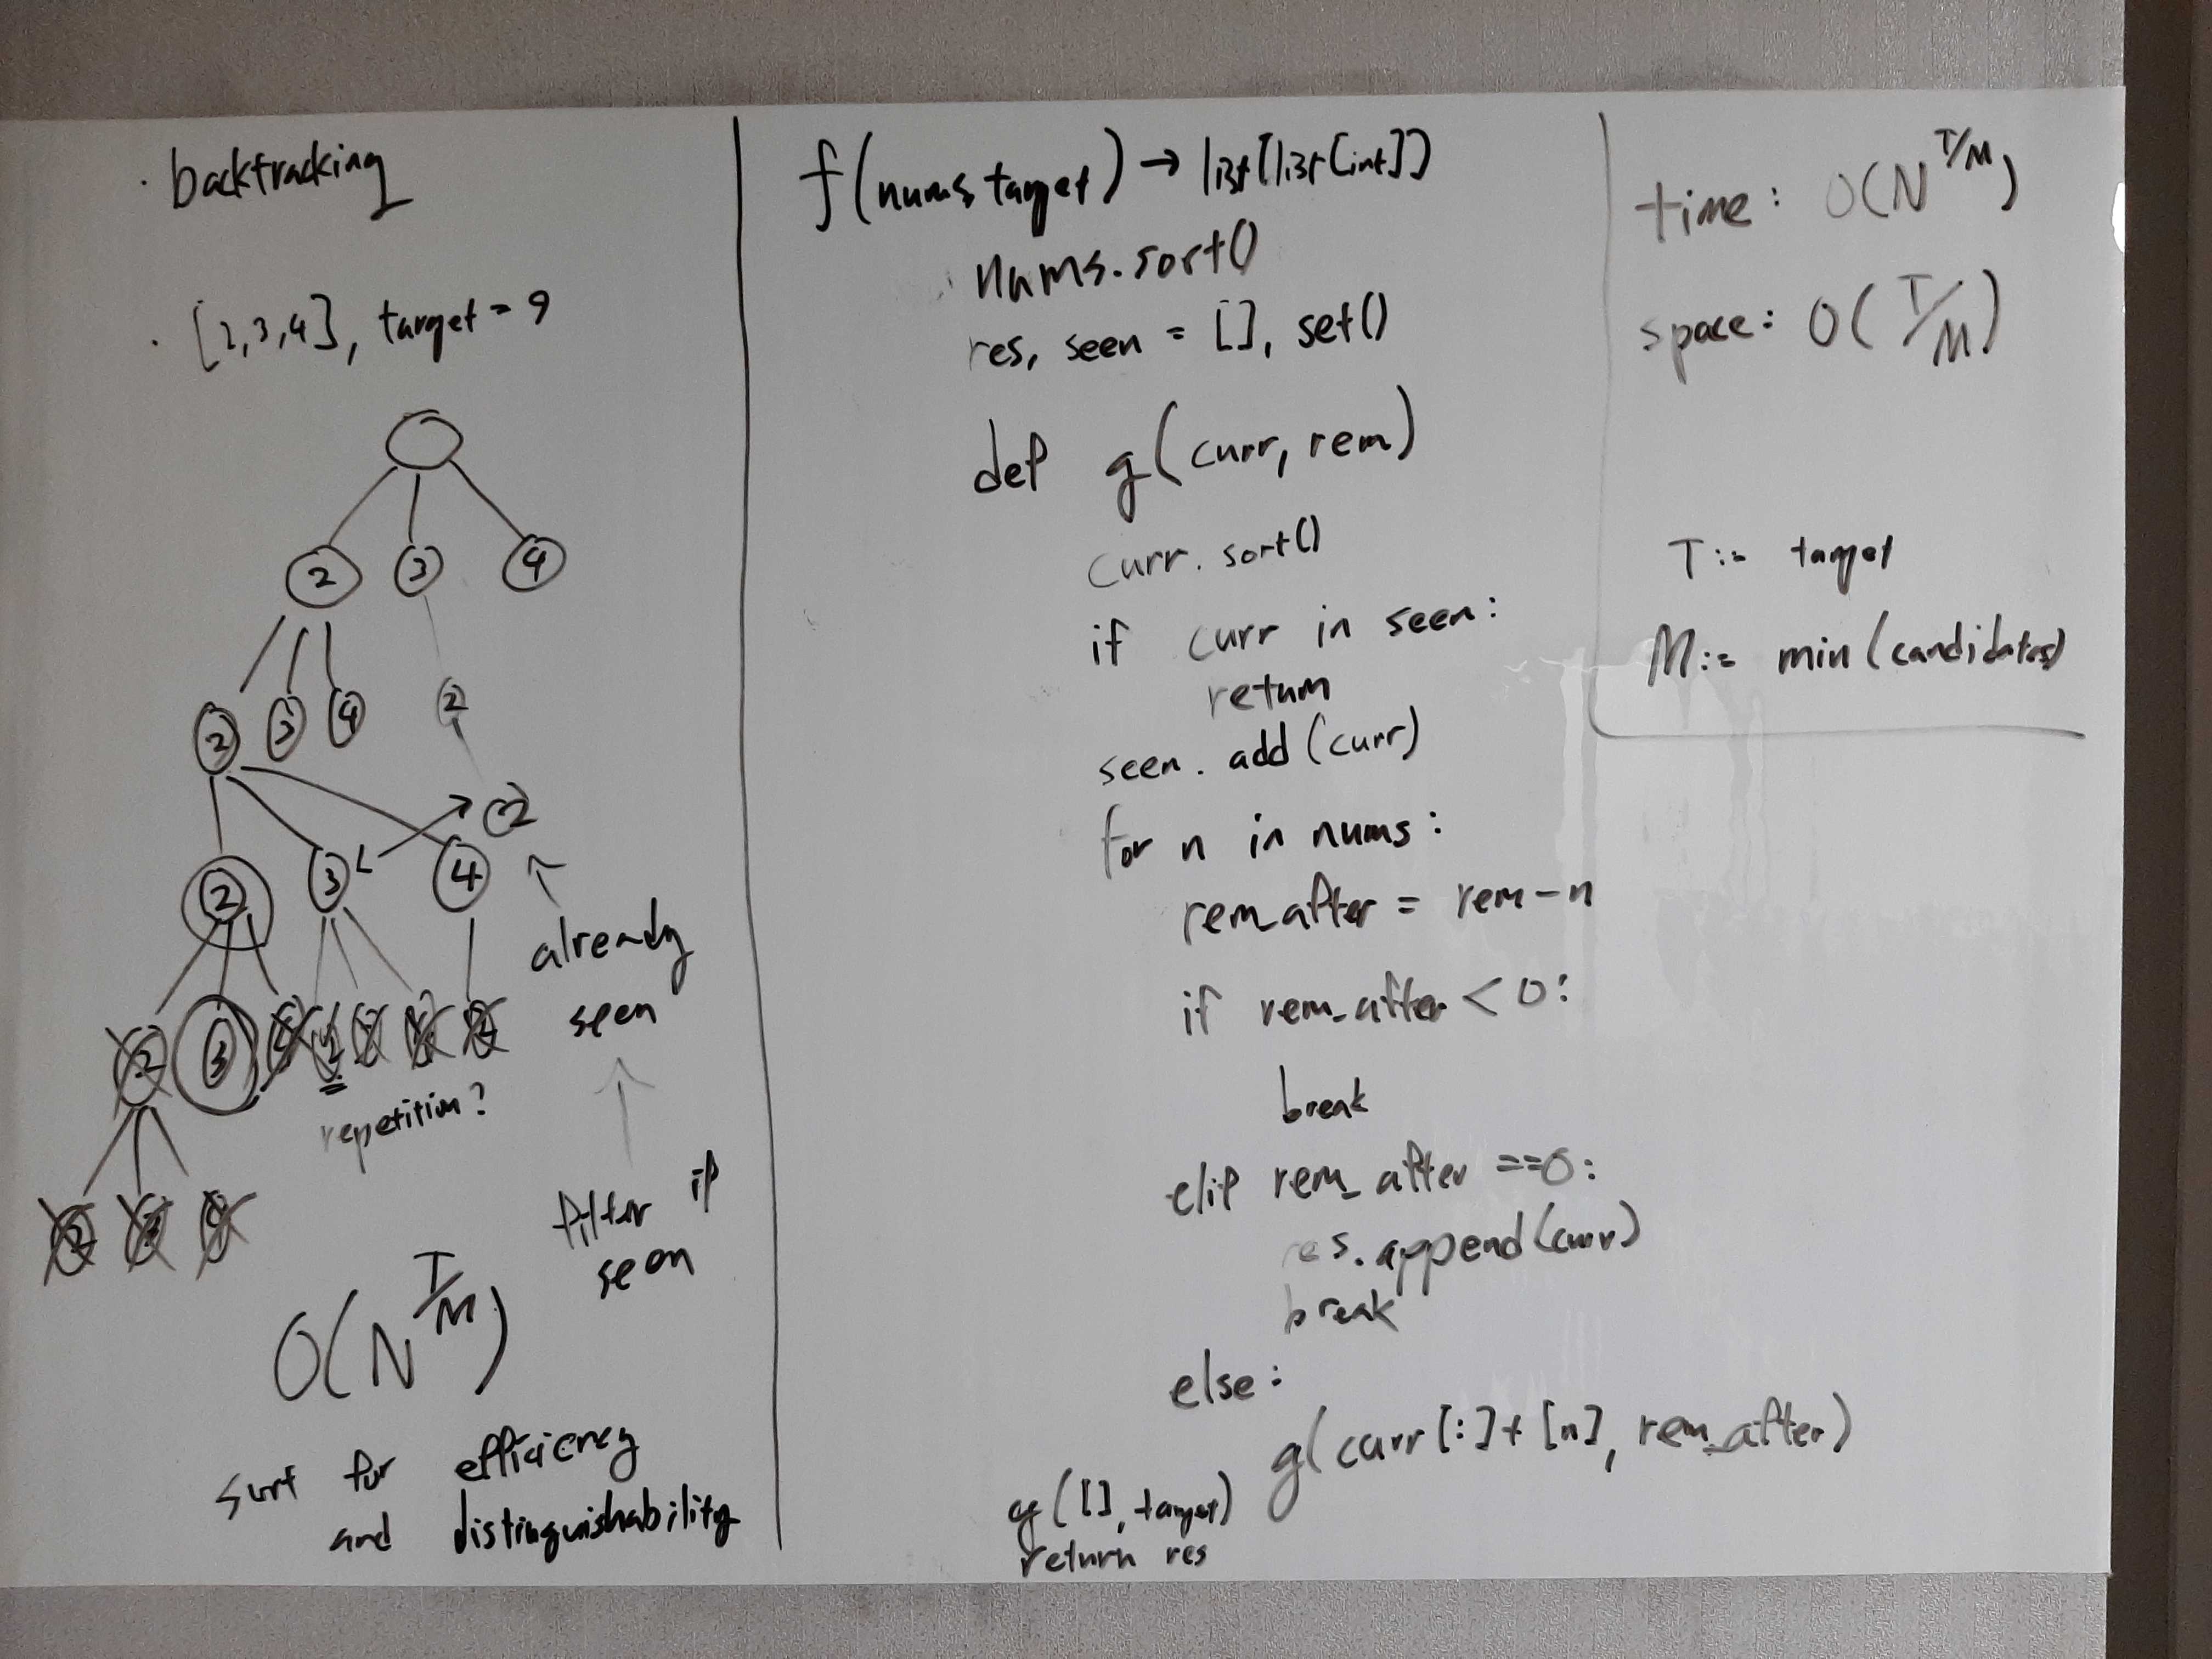 · backtracking
· [2,3,4], target = 9
2 3 4
2 3 4 2
2
2 3 4
already
seen
2 3
repetition?
filter if
seen
O(N^T/M)
sort for efficiency
and distinguishability
f(nums, target) → list[list[int]]
nums.sort()
res, seen = [], set()
def g(curr, rem)
curr.sort()
if curr in seen:
return
seen.add(curr)
for n in nums:
rem_after = rem - n
if rem_after < 0:
break
elif rem_after == 0:
res.append(curr)
break
else:
g(curr[:] + [n], rem_after)
g([], target)
return res
time: O(N^T/M)
space: O(T/M)
T := target
M := min(candidates)